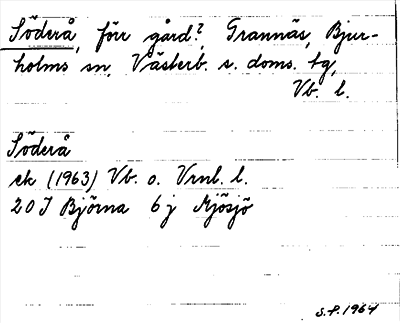 Söderå, förr gård?, Grannäs, Bjur-
holms sn, Västerb. s. doms. tg,
Vb. l.
Söderå
ek (1963) Vb. o. Vrnl. l.
20 J Björna 6 j Mjösjö
S.F. 1964